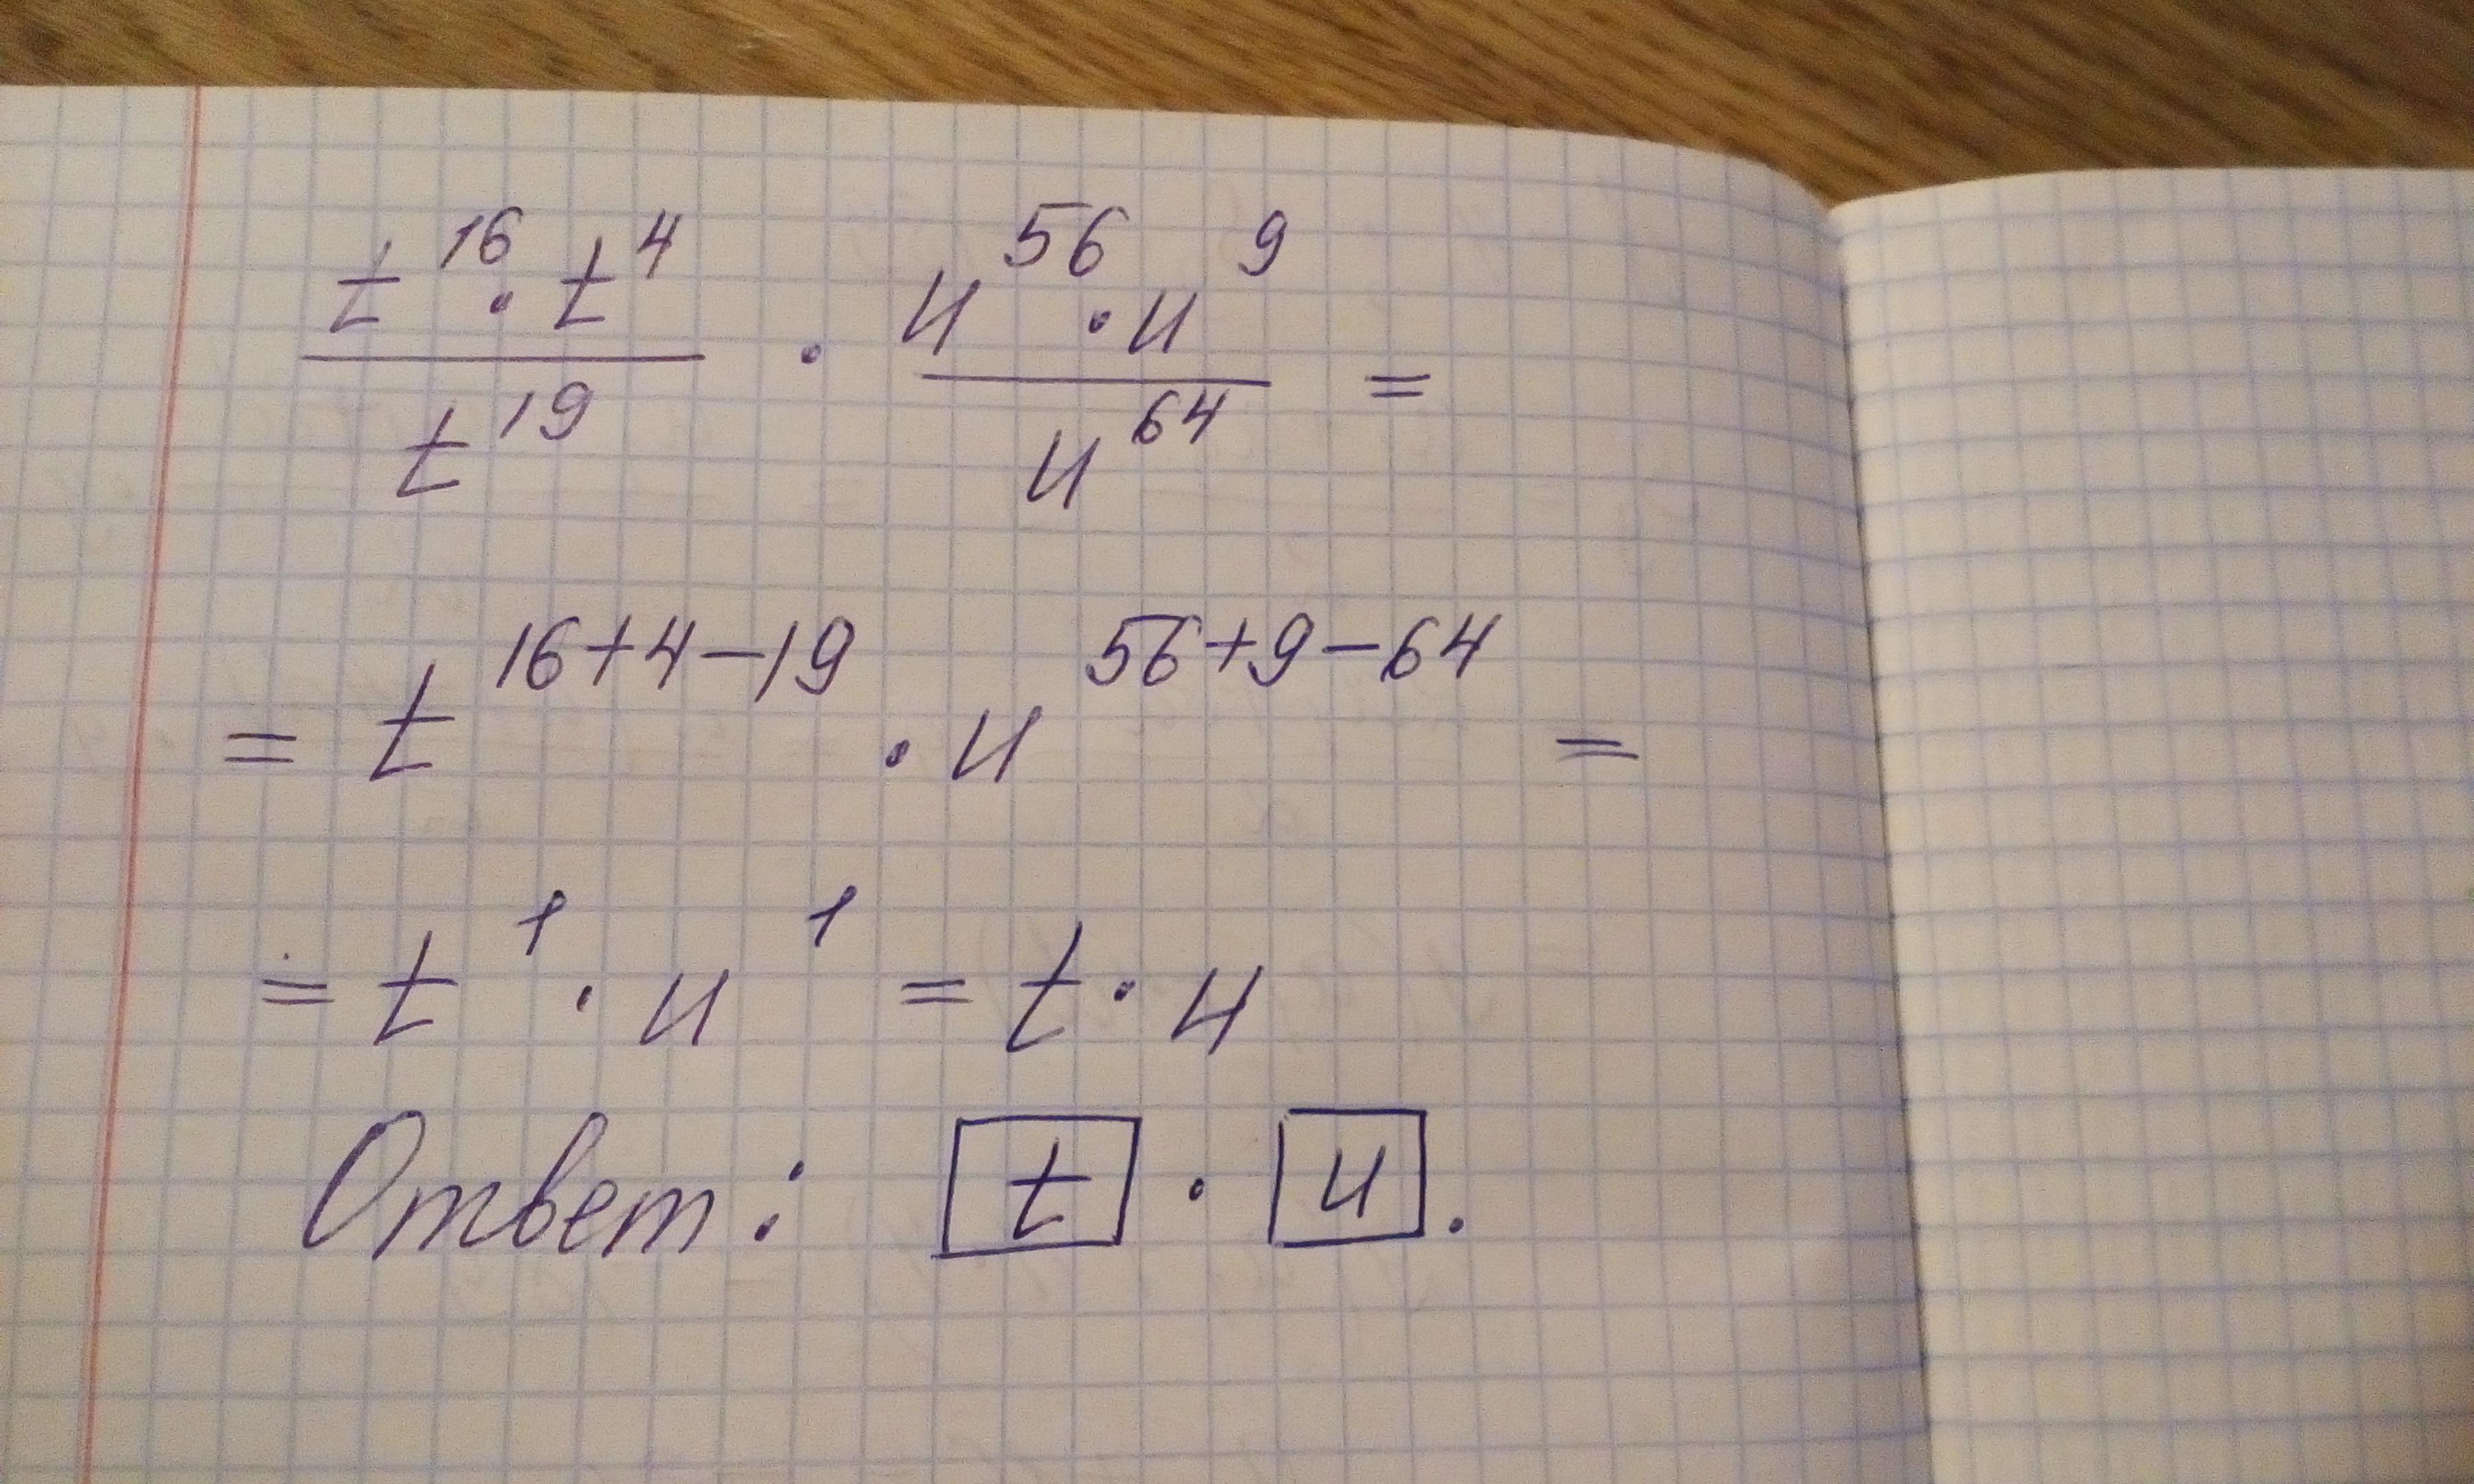 t^16 · t^4 / t^19 · u^56 · u^9 / u^64 =
= t^16+4-19 · u^56+9-64 =
= t^1 · u^1 = t · u
Ответ: t · u.